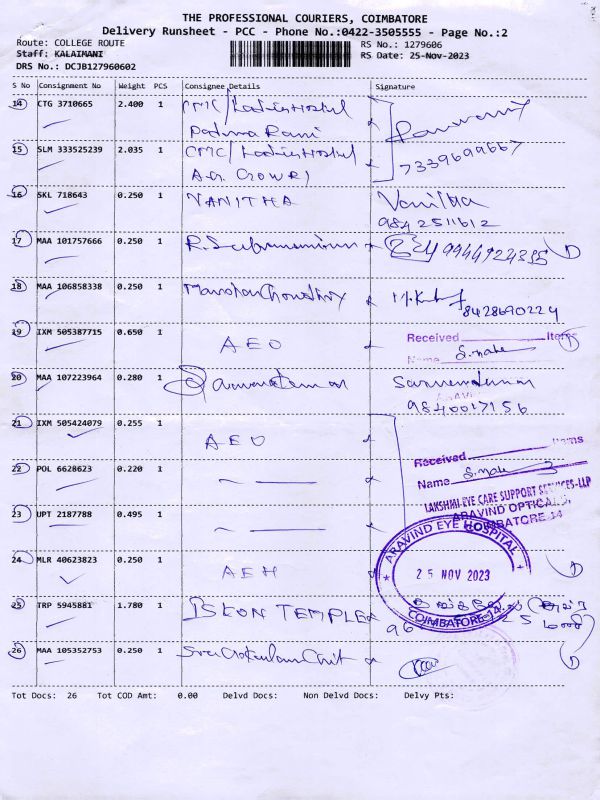 THE PROFESSIONAL COURIERS, COIMBATORE
Delivery Runsheet - PCC - Phone No.:0422-3505555 - Page No.:2
Route: COLLEGE ROUTE RS No.: 1279606
Staff: KALAIMANI RS Date: 25-Nov-2023
DRS No.: DCJB127960602
S No Consignment No Weight PCS Consignee Details Signature
14 CTG 3710665 2.400 1 CMC/Ladies Hostel
Padma Rani
15 SLM 333525239 2.035 1 CMC/Ladies Hostel 7339699667
A.G. Gowri
16 SKL 718643 0.250 1 VANITHA Vanitha
9842511612
17 MAA 101757666 0.250 1 R. Subramanian 9944924355
18 MAA 106858338 0.250 1 8428690224
19 IXM 505387715 0.650 1 AEO Received Items
Name
20 MAA 107223964 0.280 1
9840017156
21 IXM 505424079 0.255 1 AEO
Received Items
22 POL 6628623 0.220 1 Name
LAKSHMI EYE CARE SUPPORT SERVICES-LLP
23 UPT 2187788 0.495 1 ARAVIND OPTICALS
COIMBATORE-14
ARAVIND EYE HOSPITAL
24 MLR 40623823 0.250 1 AEH 25 NOV 2023
COIMBATORE-14
25 TRP 5945881 1.780 1 ISKON TEMPLE
26 MAA 105352753 0.250 1
Tot Docs: 26 Tot COD Amt: 0.00 Delvd Docs: Non Delvd Docs: Delvy Pts: